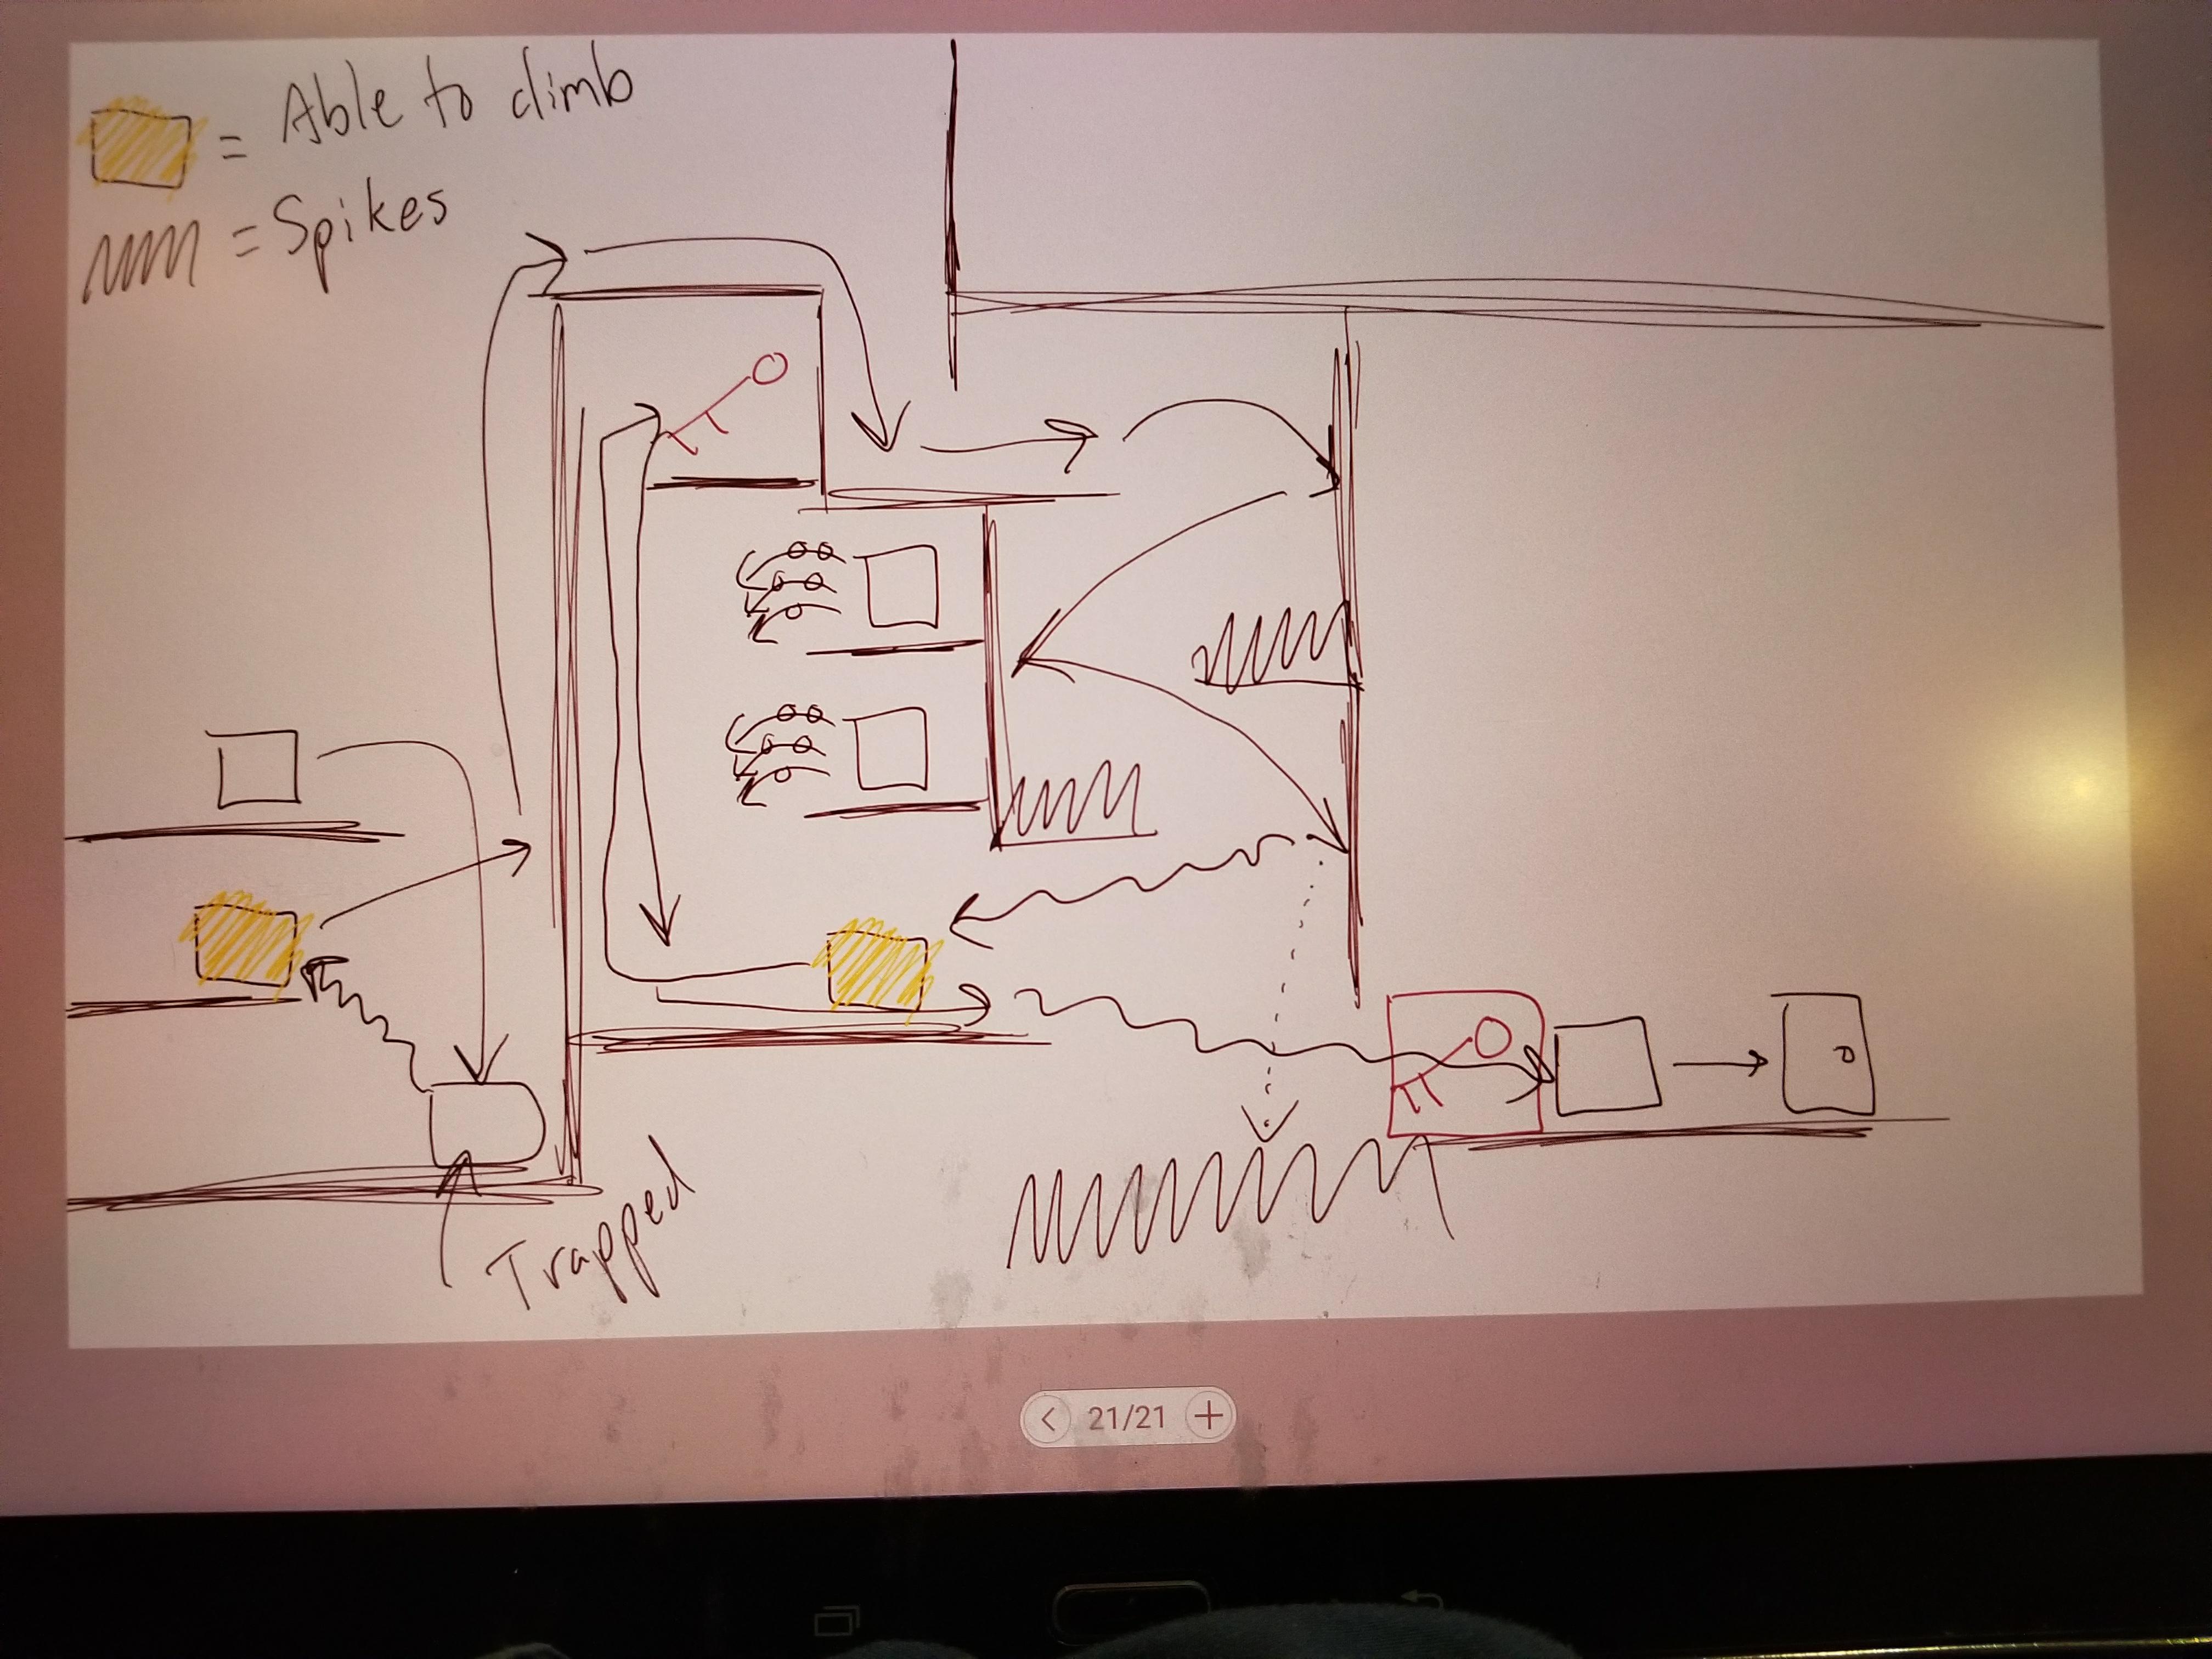 = Able to climb
= Spikes
Trapped
21/21